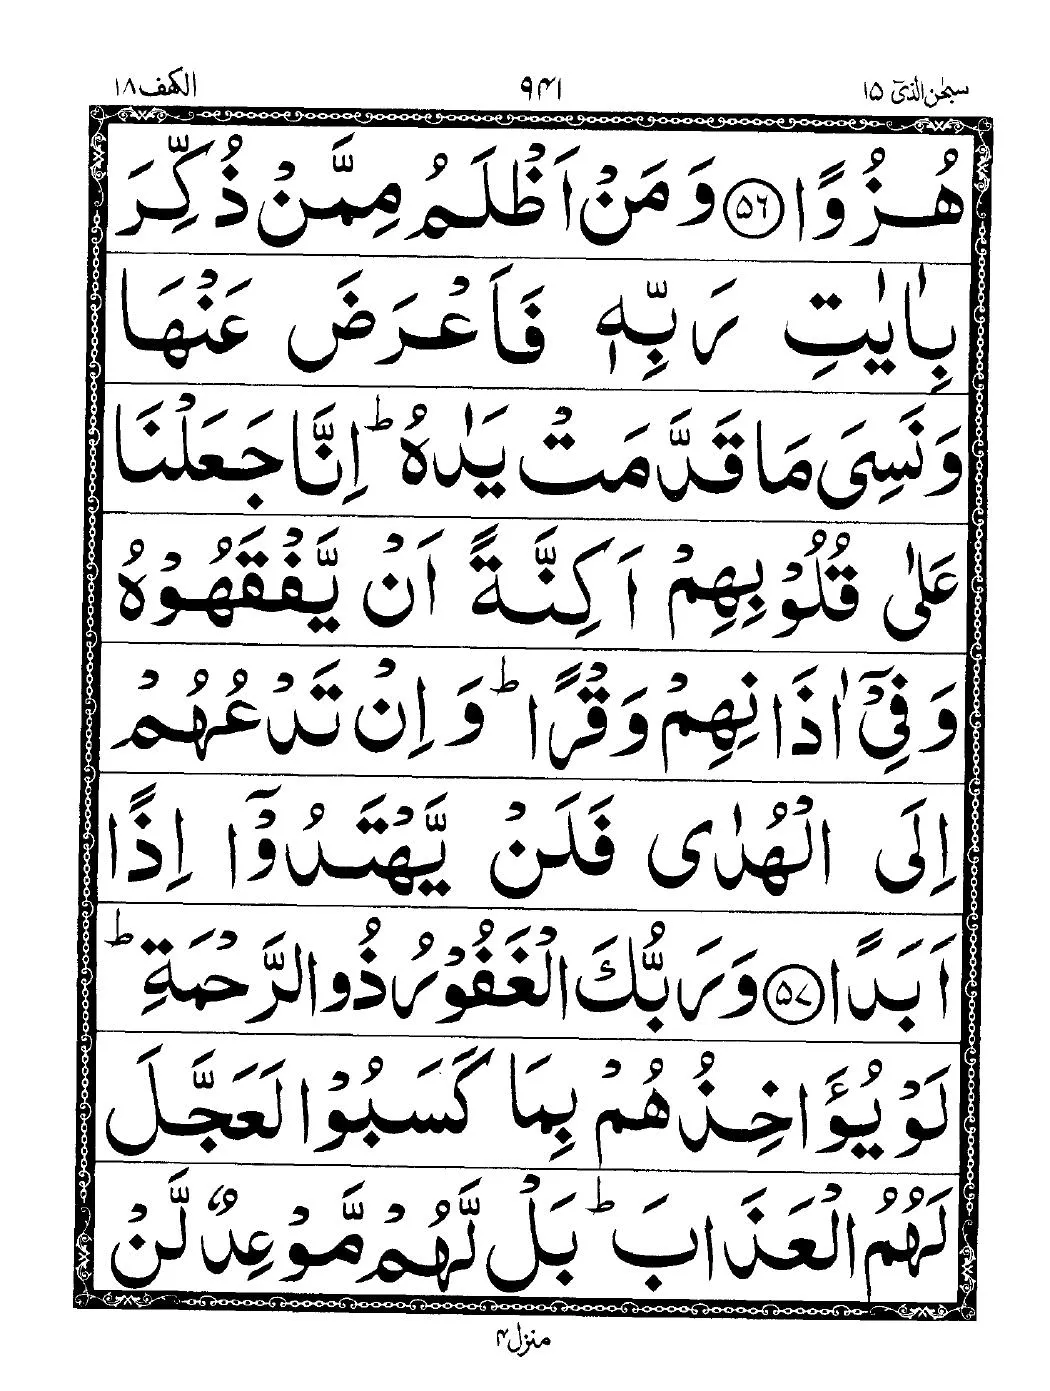 سبحٰن الذیٓ ۱۵ ۹۴۱ الکهف ۱۸
هُزُوًا ۝۵۶ وَمَنْ اَظْلَمُ مِمَّنْ ذُكِّرَ
بِاٰيٰتِ رَبِّهٖ فَاَعْرَضَ عَنْهَا
وَنَسِیَ مَا قَدَّمَتْ يَدٰهُ ؕ اِنَّا جَعَلْنَا
عَلٰی قُلُوْبِهِمْ اَكِنَّةً اَنْ يَّفْقَهُوْهُ
وَفِیْۤ اٰذَانِهِمْ وَقْرًا ؕ وَاِنْ تَدْعُهُمْ
اِلَی الْهُدٰی فَلَنْ يَّهْتَدُوْۤا اِذًا
اَبَدًا ۝۵۷ وَرَبُّكَ الْغَفُوْرُ ذُو الرَّحْمَةِ ؕ
لَوْ يُؤَاخِذُهُمْ بِمَا كَسَبُوْا لَعَجَّلَ
لَهُمُ الْعَذَابَ ؕ بَلْ لَّهُمْ مَّوْعِدٌ لَّنْ
منزل ۴